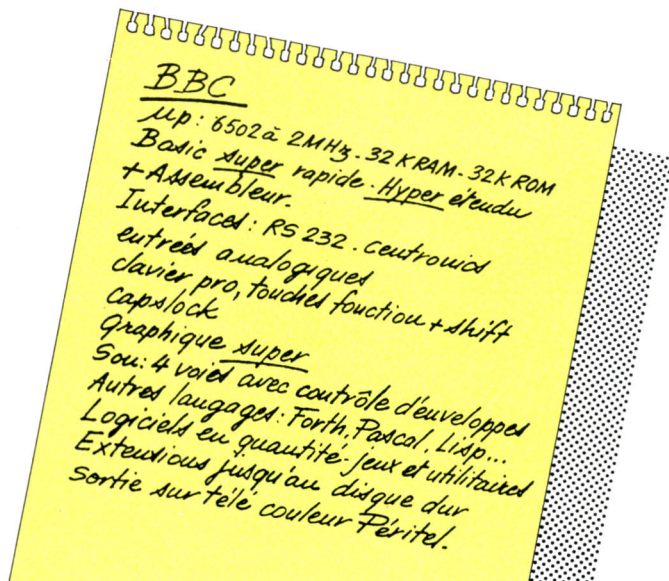 BBC
µp: 6502 à 2MHz - 32K RAM - 32K ROM
Basic super rapide. Hyper étendu
+ Assembleur.
Interfaces: RS 232. Centronics
entrées analogiques
clavier pro, touches fonction + shift
capslock
Graphique super
Son: 4 voies avec contrôle d'enveloppes
Autres langages: Forth, Pascal, Lisp...
Logiciels en quantité - jeux et utilitaires
Extensions jusqu'au disque dur
Sortie sur télé couleur Péritel.